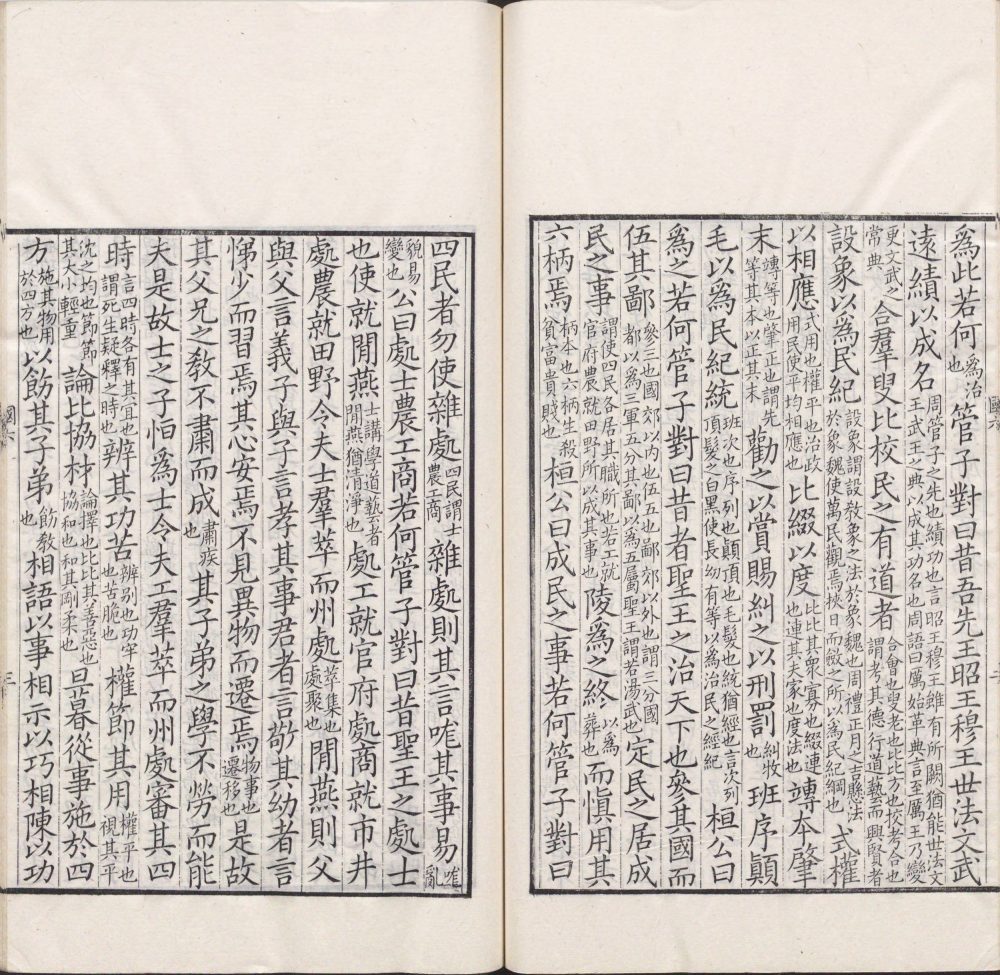 爲此若何爲治也管子對曰昔吾先王昭王穆王世法文武
遠績以成名周管子之先也績功也言昭王穆王雖有所闕猶能世法文王武王之典以成其功名也周語曰厲始革典言至厲王乃變
更文武之常典合羣叟比校民之有道者合會也叟老也比比方也校考合也謂考其德行道藝而興賢者
設象以爲民紀設象謂設敎象之法於象魏也周禮正月之吉懸法於象魏使萬民觀焉挾日而斂之所以爲民紀綱也式權
以相應式用也權平也治政用民使平均相應也比綴以度比比其衆寡也綴連也連其夫家也度法也竱本肇
末竱等也肇正也謂先等其本以正其末勸之以賞賜糾之以刑罰糾收也班序顚
毛以爲民紀統班次也序列也顚頂也毛髮也統猶經也言次列頂髮之白黑使長幼有等以爲治民之經紀桓公曰
爲之若何管子對曰昔者聖王之治天下也參其國而
伍其鄙參三也國郊以內也伍五也鄙郊以外也謂三分國都以爲三軍五分其鄙以爲五屬聖王謂若湯武也定民之居成
民之事謂使四民各居其職所也若工就官府農就田野所以成其事也陵爲之終以爲葬也而愼用其
六柄焉柄本也六柄生殺貧富貴賤也桓公曰成民之事若何管子對曰
四民者勿使雜處四民謂士農工商雜處則其言哤其事易哤亂
貌易變也公曰處士農工商若何管子對曰昔聖王之處士
也使就閒燕士講學道藝者閒燕猶清淨也處工就官府處商就市井
處農就田野令夫士羣萃而州處萃集也處聚也閒燕則父
與父言義子與子言孝其事君者言敬其幼者言
悌少而習焉其心安焉不見異物而遷焉物事也遷移也是故
其父兄之敎不肅而成肅疾也其子弟之學不勞而能
夫是故士之子恒爲士令夫工羣萃而州處審其四
時言四時各有其宜也謂死生疑釋之時也辨其功苦辨別也功牢也苦脆也權節其用權平也視其平
沈之均也節節其大小輕重論比協材論擇也比比其善惡也協和也和其剛柔也旦暮從事施於四
方施其物用於四方也以飭其子弟飭敎也相語以事相示以巧相陳以功